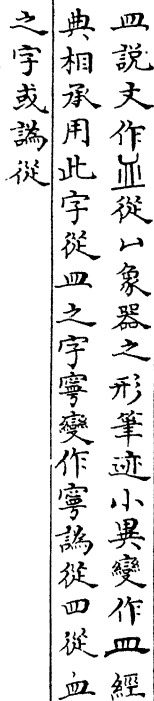 皿説文作𥁑從𠔁象器之形筆迹小異變作皿經
典相承用此字從皿之字寧變作寕譌從四從血
之字或譌從